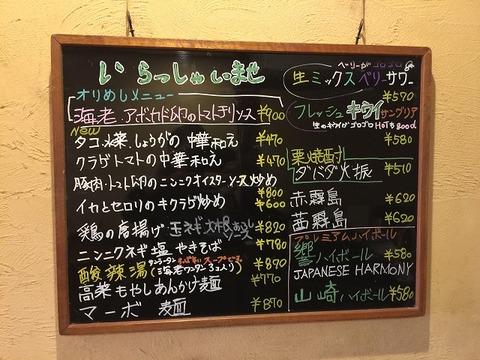 いらっしゃいませ
オリめしメニュー
海老・アボカド・卵のトマトチリソース ¥900
New
タコ、水菜、しょうがの中華和え ¥470
クラゲトマトの中華和え ¥470
豚肉・トマト・卵のニンニクオイスターソース炒め ¥800
イカとセロリのキクラゲ炒め ¥600
鶏の唐揚げ 玉ネギ ソース ¥820
ニンニクネギ塩やきそば ¥780
酸辣湯 (海老ワンタン3コ入り) ¥870
高菜もやしあんかけ麺 ¥770
マーボー麺 ¥870
ベリーが
生ミックスベリーサワー
¥570
フレッシュキウイサングリア
生のキウイがゴロゴロ Hot & Good
¥580
栗焼酎
ダバダ火振 ¥510
赤霧島 ¥620
茜霧島 ¥620
プレミアムハイボール
響ハイボール ¥580
JAPANESE HARMONY
山崎ハイボール ¥580